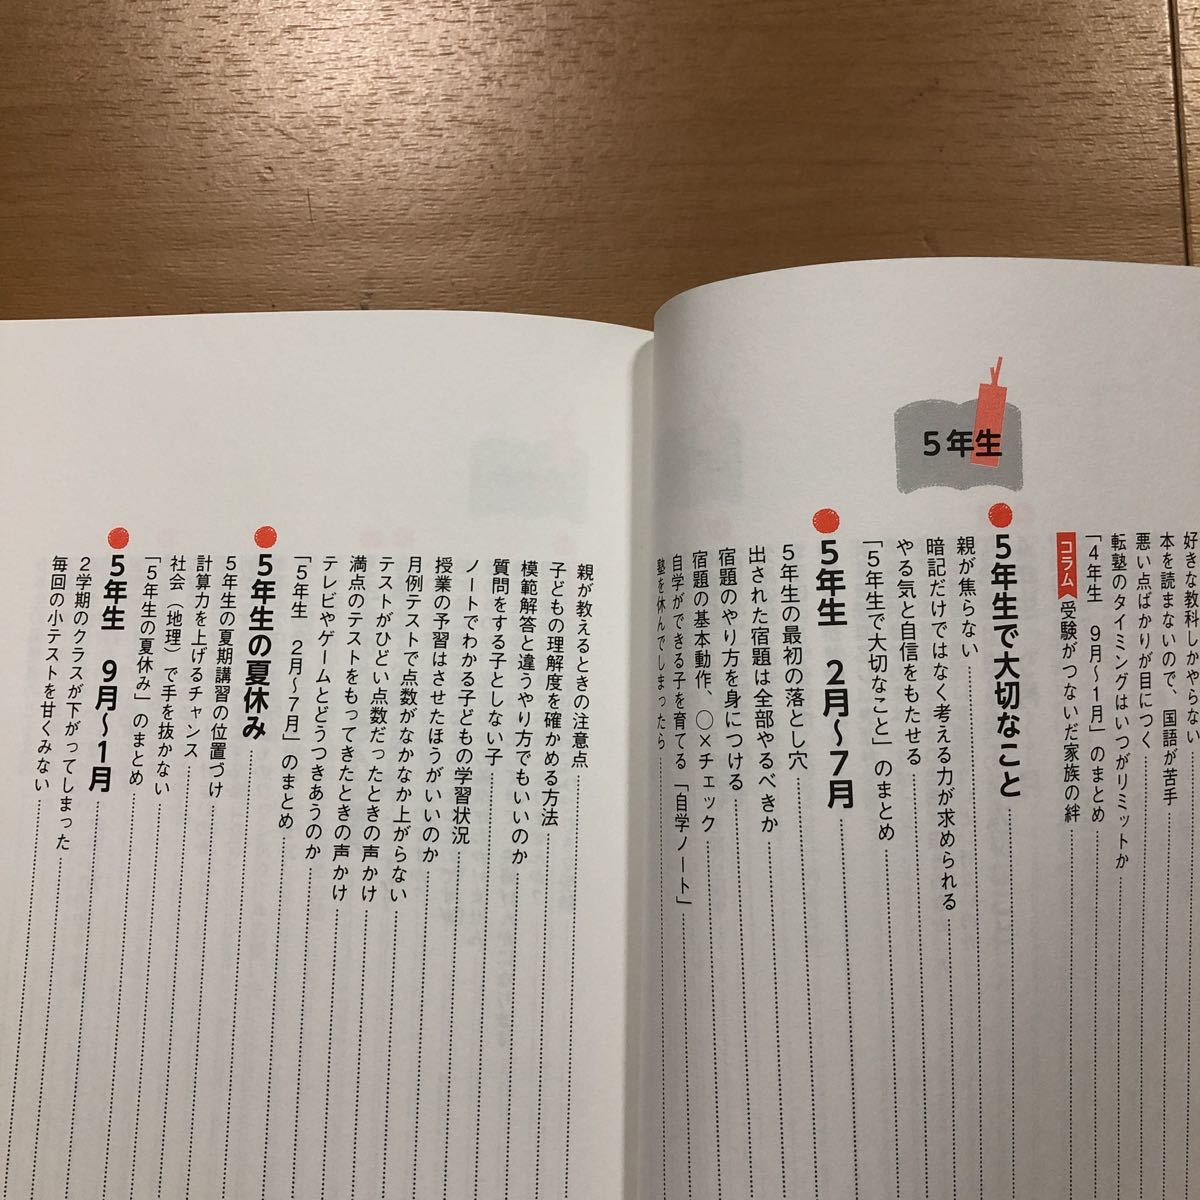 好きな教科しかやらない
本を読まないので、国語が苦手
悪い点ばかりが目につく
転塾のタイミングはいつがリミットか
「4年生 9月〜1月」のまとめ
コラム 受験がつないだ家族の絆
5年生
5年生で大切なこと
親が焦らない
暗記だけではなく考える力が求められる
やる気と自信をもたせる
「5年生で大切なこと」のまとめ
5年生 2月〜7月
5年生の最初の落とし穴
出された宿題は全部やるべきか
宿題のやり方を身につける
宿題の基本動作、○×チェック
自学ができる子を育てる「自学ノート」
塾を休んでしまったら
親が教えるときの注意点
子どもの理解度を確かめる方法
模範解答と違うやり方でもいいのか
質問をする子としない子
ノートでわかる子どもの学習状況
授業の予習はさせたほうがいいのか
月例テストで点数がなかなか上がらない
テストがひどい点数だったときの声かけ
満点のテストをもってきたときの声かけ
テレビやゲームとどうつきあうのか
「5年生 2月〜7月」のまとめ
5年生の夏休み
5年生の夏期講習の位置づけ
計算力を上げるチャンス
社会（地理）で手を抜かない
「5年生の夏休み」のまとめ
5年生 9月〜1月
2学期のクラスが下がってしまった
毎回の小テストを甘くみない